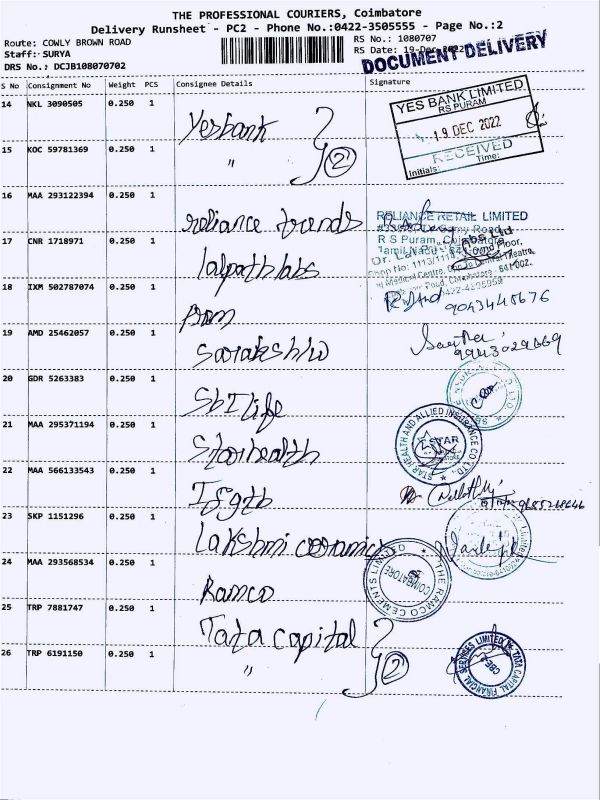 THE PROFESSIONAL COURIERS, Coimbatore
Delivery Runsheet - PC2 - Phone No.:0422-3505555 - Page No.:2
Route: COWLY BROWN ROAD
RS No.: 1080707
Staff: SURYA
RS Date: 19-Dec-2022
DRS No.: DCJB108070702
DOCUMENT DELIVERY
S No Consignment No Weight PCS Consignee Details Signature
14 NKL 3090505 0.250 1 Yesbank
YES BANK LIMITED
RS PURAM
19 DEC 2022
RECEIVED
Initials: Time:
15 KOC 59781369 0.250 1 " 2
16 MAA 293122394 0.250 1 reliance trends
RELIANCE RETAIL LIMITED
R S Puram, Coimbatore
17 CNR 1718971 0.250 1 lalpathlabs
18 IXM 502787074 0.250 1
9043445676
19 AMD 25462057 0.250 1
20 GDR 5263383 0.250 1 SbI life
21 MAA 295371194 0.250 1 Starhealth
STAR HEALTH AND ALLIED INSURANCE CO. LTD.
STAR
22 MAA 566133543 0.250 1
23 SKP 1151296 0.250 1 Lakshmi ceramics
24 MAA 293568534 0.250 1 Ramco
THE RAMCO CEMENTS LIMITED
COIMBATORE
25 TRP 7881747 0.250 1 Tata capital
26 TRP 6191150 0.250 1 " 2
TATA CAPITAL FINANCIAL SERVICES LIMITED
CBE